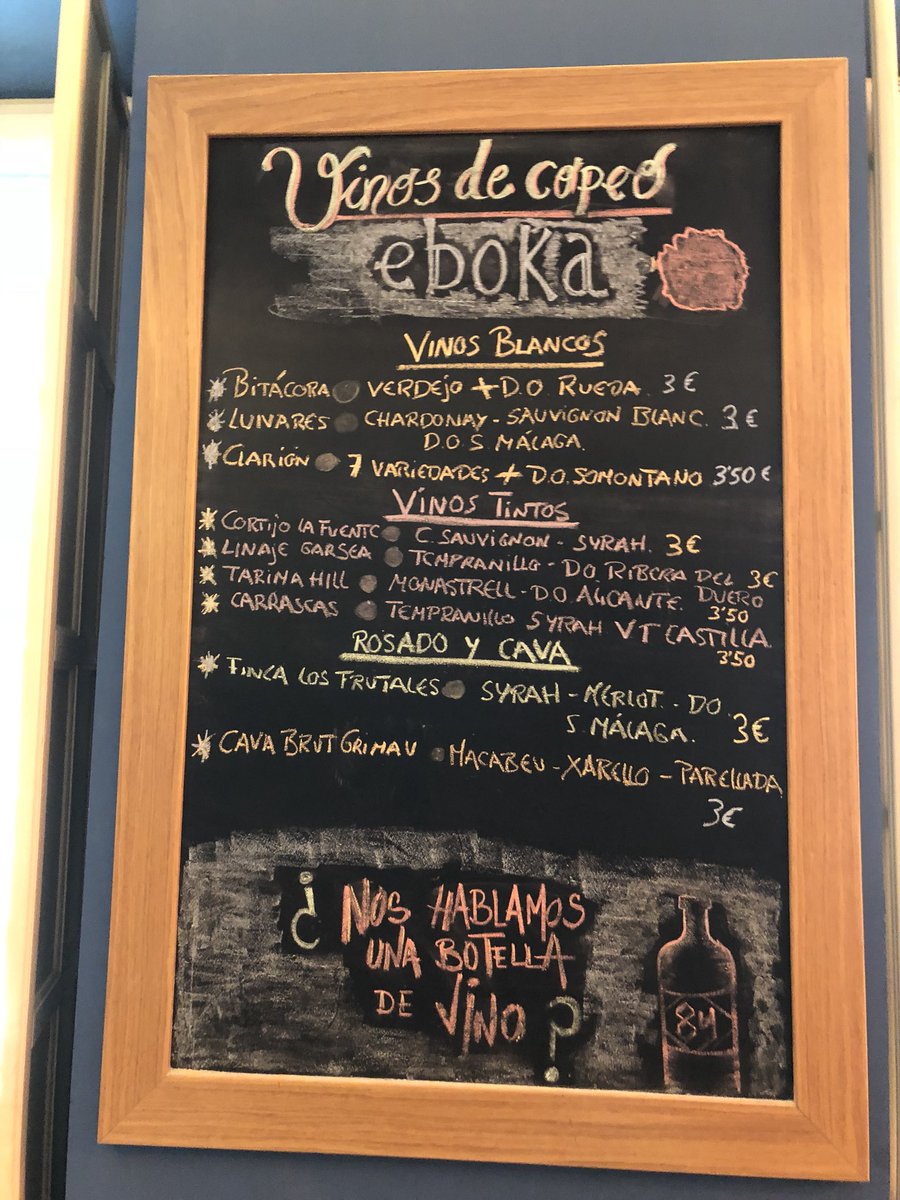 Vinos de copeo
eboka
VINOS BLANCOS
BITÁCORA VERDEJO + D.O. RUEDA. 3€
LUNARES CHARDONAY - SAUVIGNON BLANC. 3€
D.O.S MÁLAGA.
CLARIÓN 7 VARIEDADES + D.O. SOMONTANO 3'50€
VINOS TINTOS
CORTIJO LA FUENTE C. SAUVIGNON - SYRAH. 3€
LINAJE GARSEA TEMPRANILLO - DO. RIBERA DEL 3€
DUERO
TARIMA HILL MONASTRELL - D.O. ALICANTE. 3'50
CARRASCAS TEMPRANILLO SYRAH VT CASTILLA
3'50
ROSADO Y CAVA
FINCA LOS FRUTALES SYRAH - MERLOT. - DO.
S. MÁLAGA. 3€
CAVA BRUT GRIMAU MACABEU - XARELLO - PARELLADA
3€
¿NOS HABLAMOS
UNA BOTELLA
DE VINO?
84